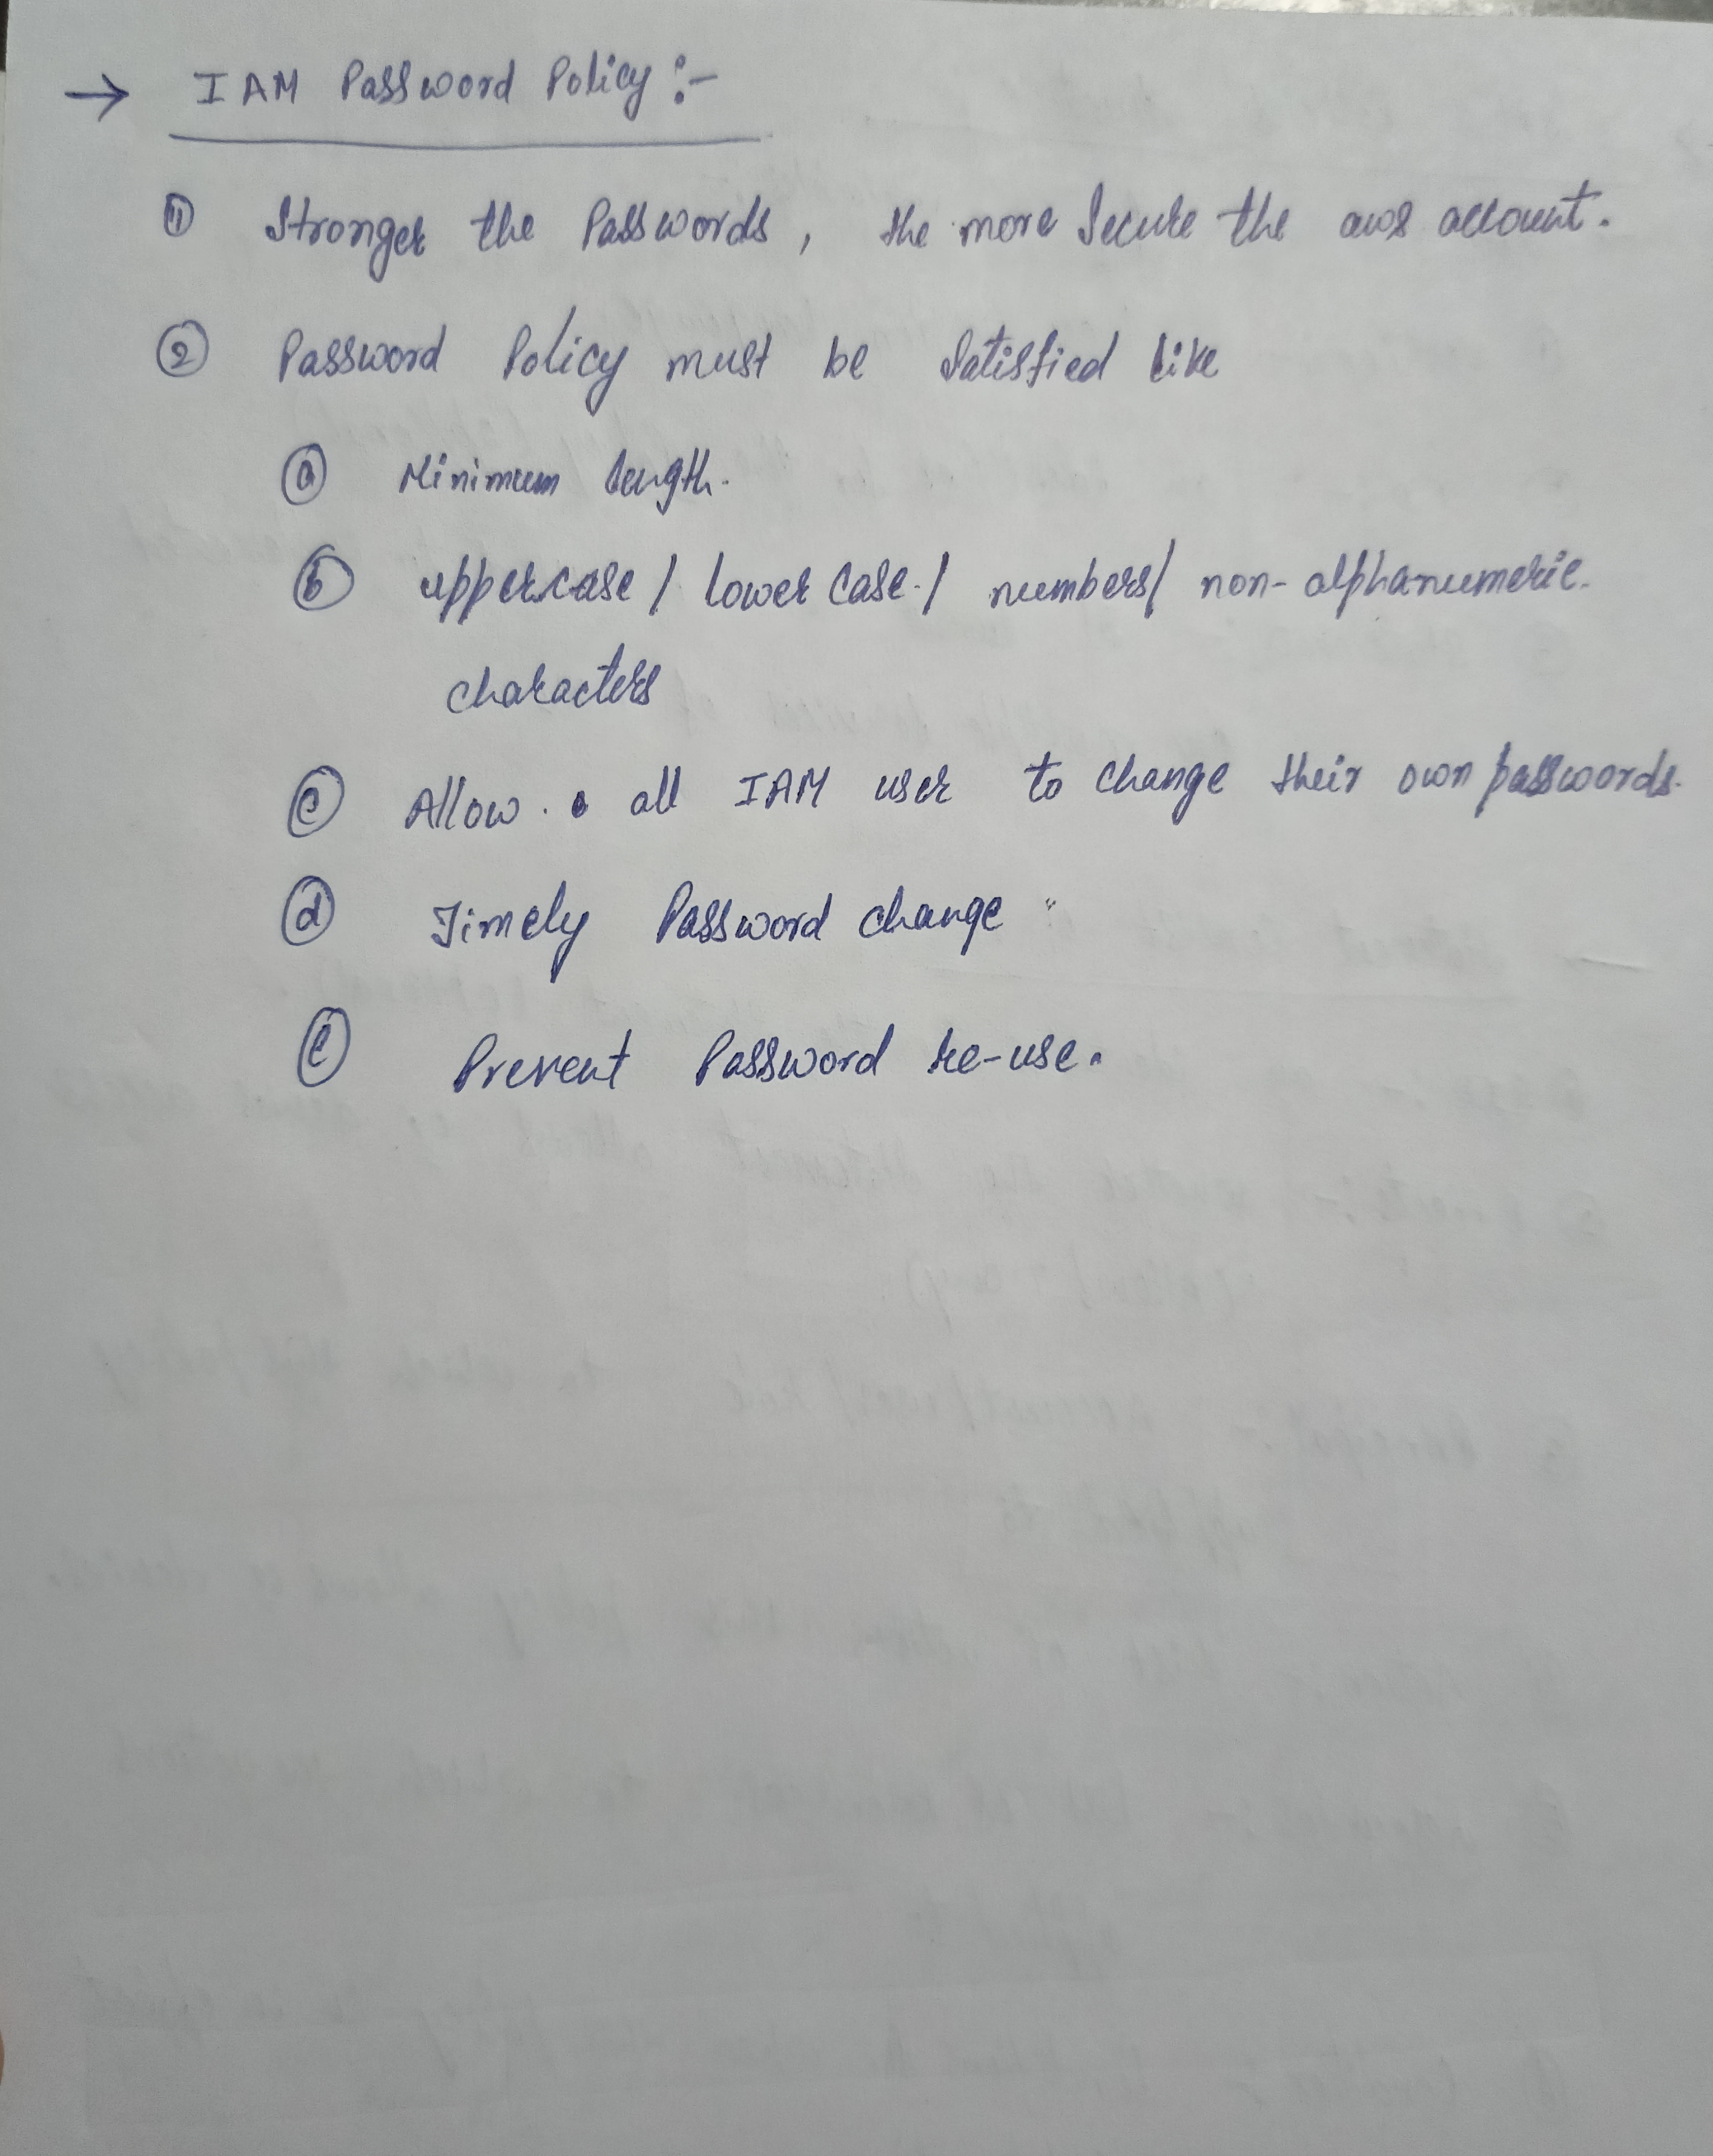 → IAM Password Policy :-
① Stronger the Passwords, the more Secure the aws account.
② Password Policy must be Satisfied like
ⓐ Minimum length.
ⓑ uppercase / lower case / numbers / non-alphanumeric.
characters
ⓒ Allow all IAM user to change their own passwords.
ⓓ Timely Password change
ⓔ Prevent Password re-use.